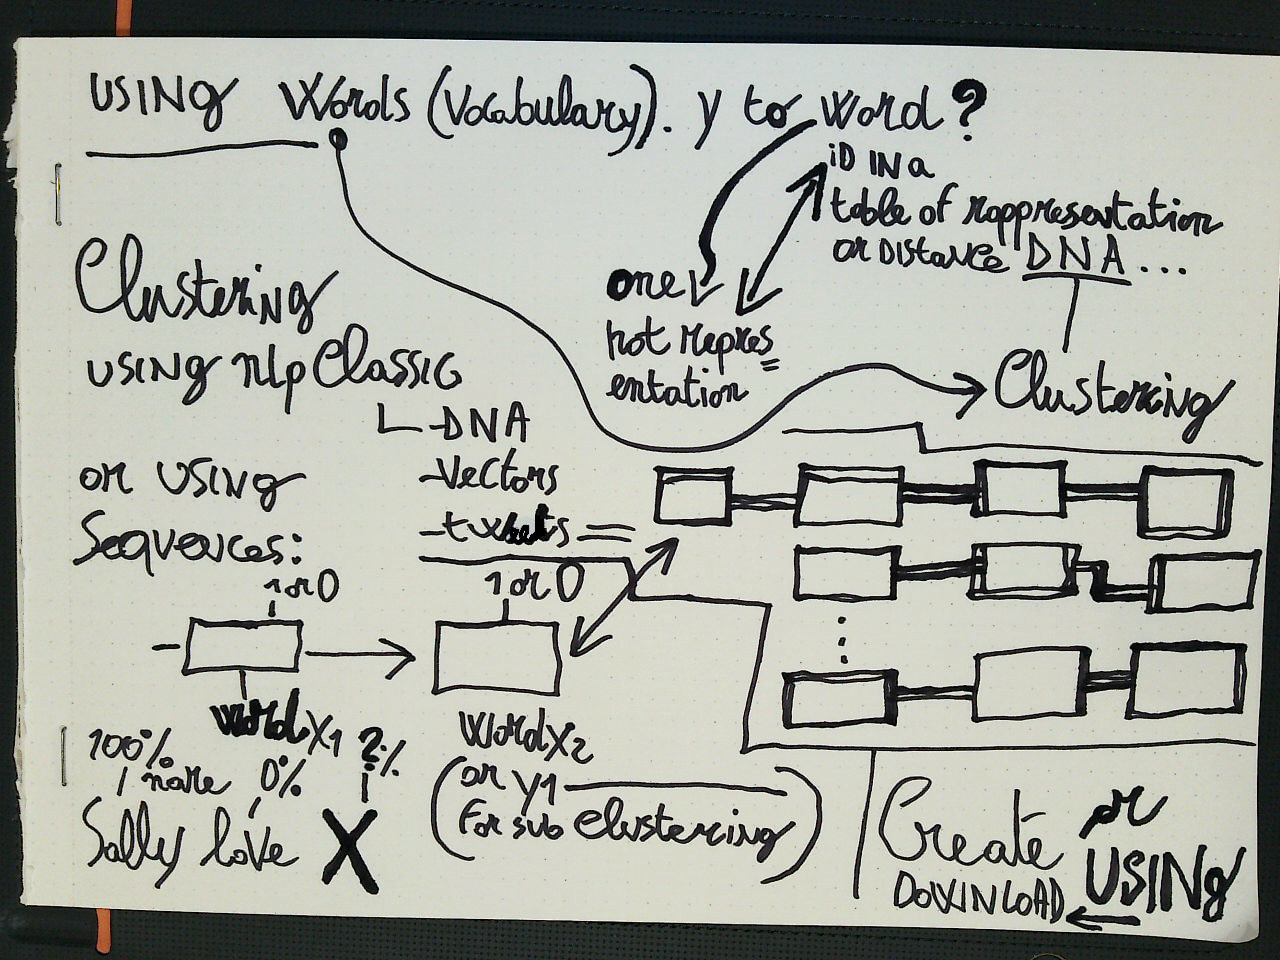 USING Words (Vocabulary). y to word?
iD IN a
table of rappresentation
or DISTANCE DNA...
one
hot repres=
entation
Clustering
Clustering
USING nlp Classic
-DNA
-Vectors
or USING
Sequences:
1 or 0
1 or 0
word X1
word X2
or y1
(For sub clustering)
100%
nare 0%
?%
Sally love X
Create or
USING
DOWNLOAD